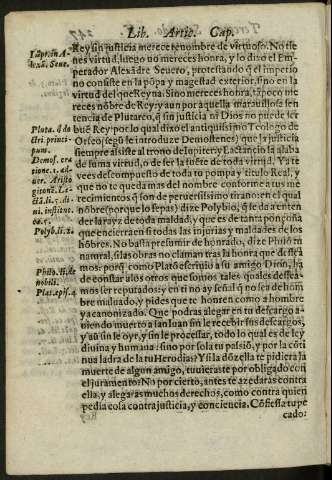 Lib. Artic. Cap.
Rey sin justicia merece renombre de virtuoso. No tie
nes virtud, luego no mereces honra, y lo dixo el Em-
perador Alexãdre Seuero, protestando q̃ el imperio
no consiste en la põpa y magestad exterior, sino en la
virtud del que Reyna: Sino mereces honra, tãpoco me
reces nõbre de Rey: y aun por aquella marauillosa sen
tencia de Plutarco, q̃ sin justicia ni Dios no puede ser
buẽ Rey: por lo qual dixo el antiquissimo Teologo de
Orfeo (segũ le introduze Demostenes) que la justicia
siempre assiste al trono de Iupiter: y Lactancio la alaba
de suma virtud, o de ser la fuẽte de toda virtud. Ya te
vees descompuesto de toda tu pompa y titulo Real, y
que no te queda mas del nombre conforme a tus me
recimientos q̃ son de peruersissimo tirano: en el qual
nõbre (porque lo sepas) dize Polybio, q̃ se da a enten
der la rayz de toda maldad, y que es de tanta ponçoña
que encierra en si todas las injurias y maldades de los
hõbres. No basta presumir de honrado, dize Philõ tu
natural, si las obras no claman tras la honra que dessea
mos: porq̃ como Platõ escriuio a su amigo Diõn, ha
de constar a los otros que somos tales quales dessea-
mos ser reputados: y en ti no ay señal q̃ no sea de hom
bre maluado, y pides que te honren como a hombre
ya canonizado. Que podras alegar en tu descargo a-
uiendo muerto a san Iuan sin le recebir sus descargos,
y aũ sin le oyr, y sin le processar, todo lo qual es de ley
diuina y humana: sino por sola tu passiõ, y por la cõti
nua ladra de la tu Herodias? Y si la dõzella te pidiera la
muerte de algun amigo, tuuieraste por obligado con
el juramento? No por cierto, antes te azedaras contra
ella, y alegaras muchos derechos, como contra quien
pedia cosa contra justicia, y conciencia. Cõfiessa tu pe
cado:
Lãpri. in A-
lexã. Seue.
Pluta. q̃ do
ctri princi-
pum.
Demos. ora
tione. 1. ad-
uer. Aristo
gitonẽ. La-
ctã. li. 5. di-
ui. institut.
ca. 5.
Polyb. li. 2.
Philo. li. de
nobili.
Plat. epis. 4